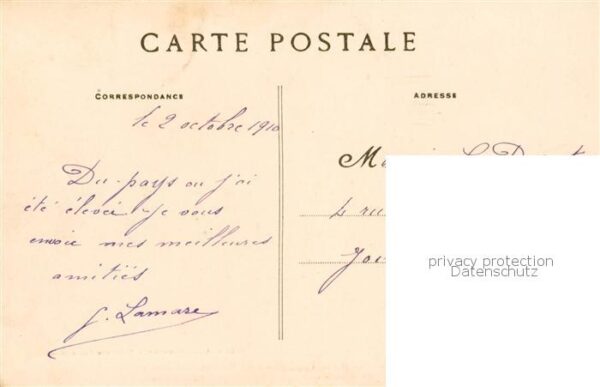 CARTE POSTALE
CORRESPONDANCE
ADRESSE
le 2 octobre 1910
Du pays ou j'ai
été élevée je vous
envoie mes meilleures
amitiés
G. Lamare
4 ru
privacy protection
Datenschutz